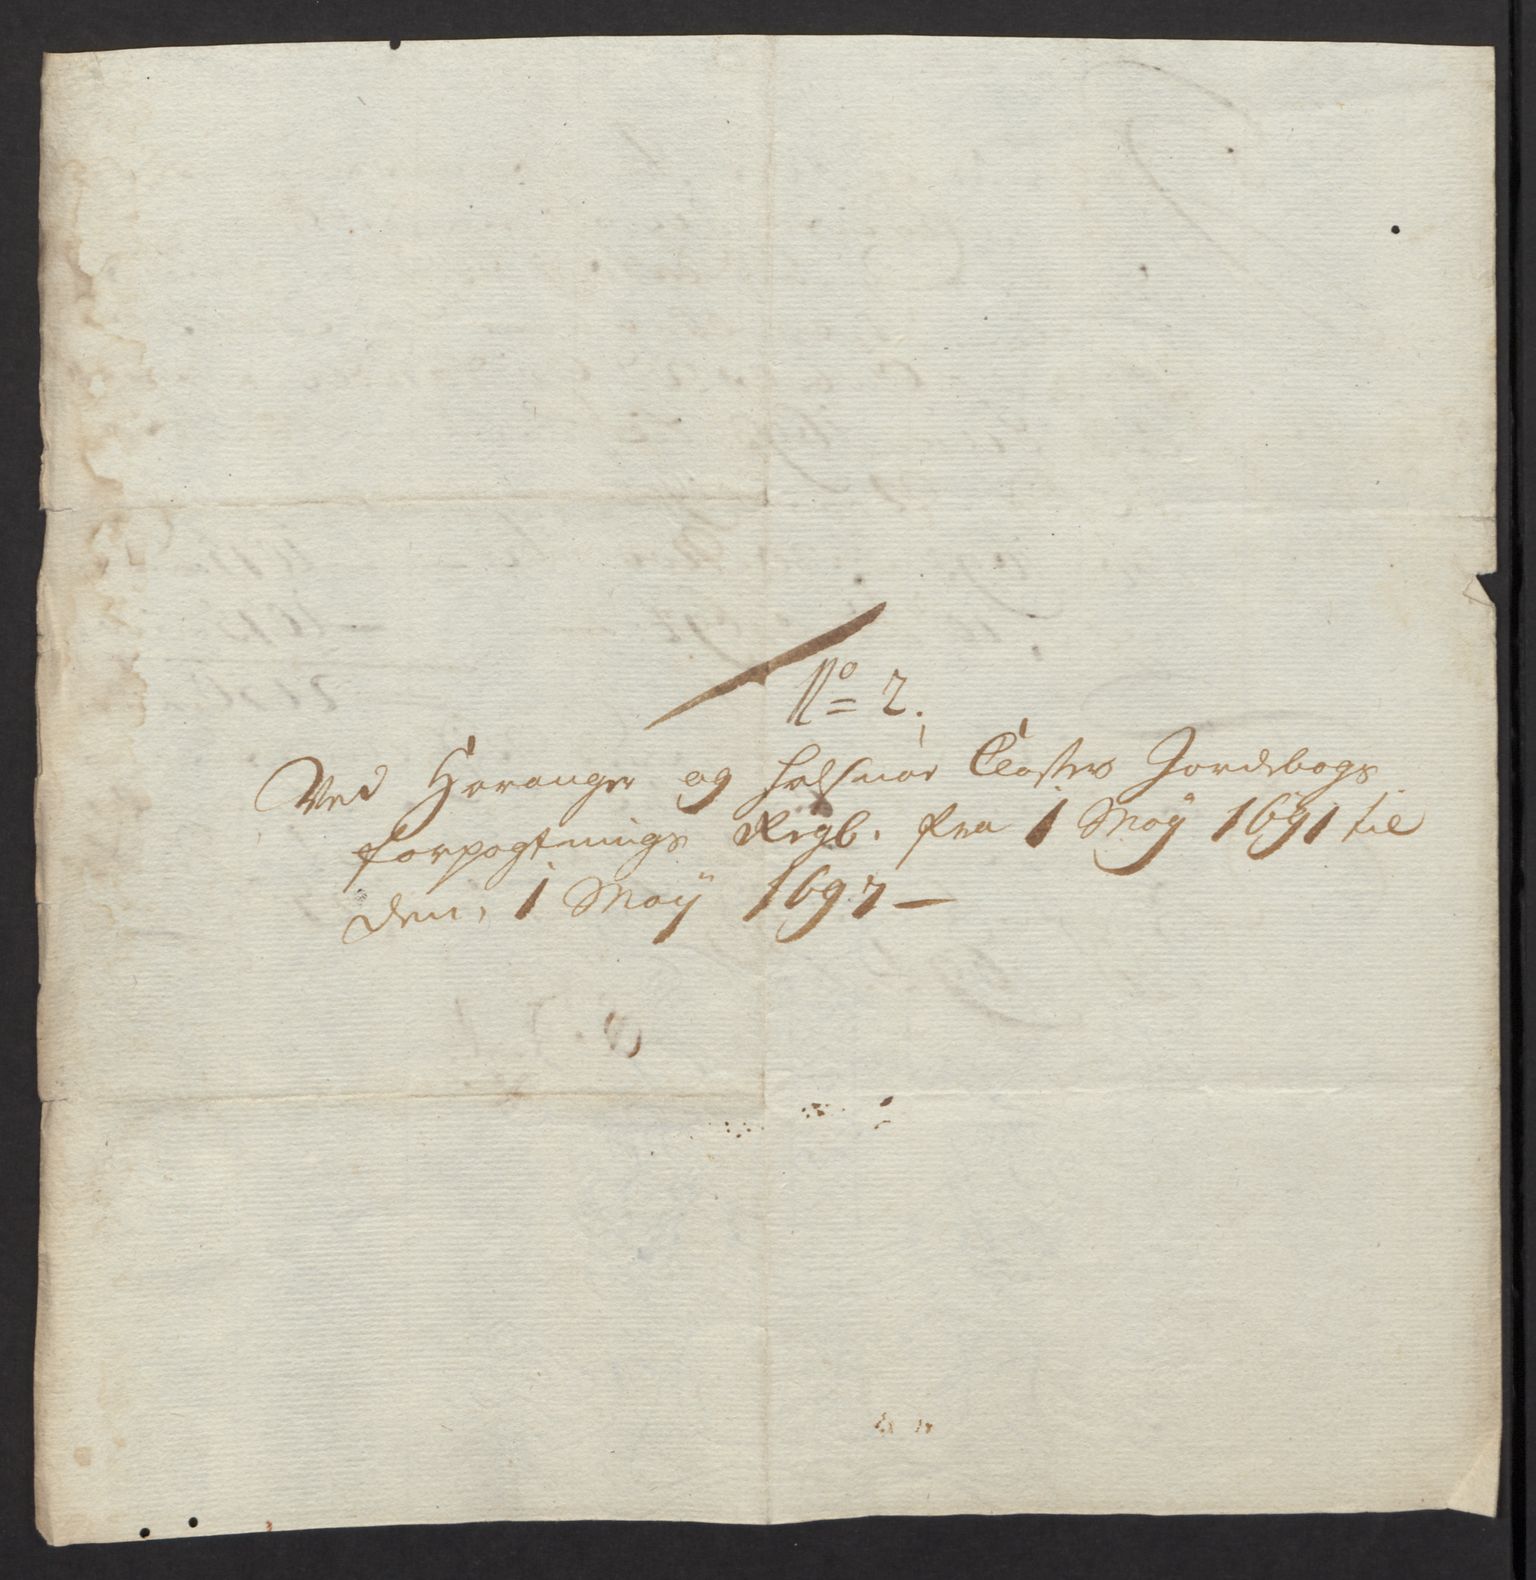 No= 2.
Ved Haranger og Halsnøe Closters Jordebogs
forpagtnings Regb. fra 1 Maÿ 1691 til
den, 1 Maÿ 1692 —